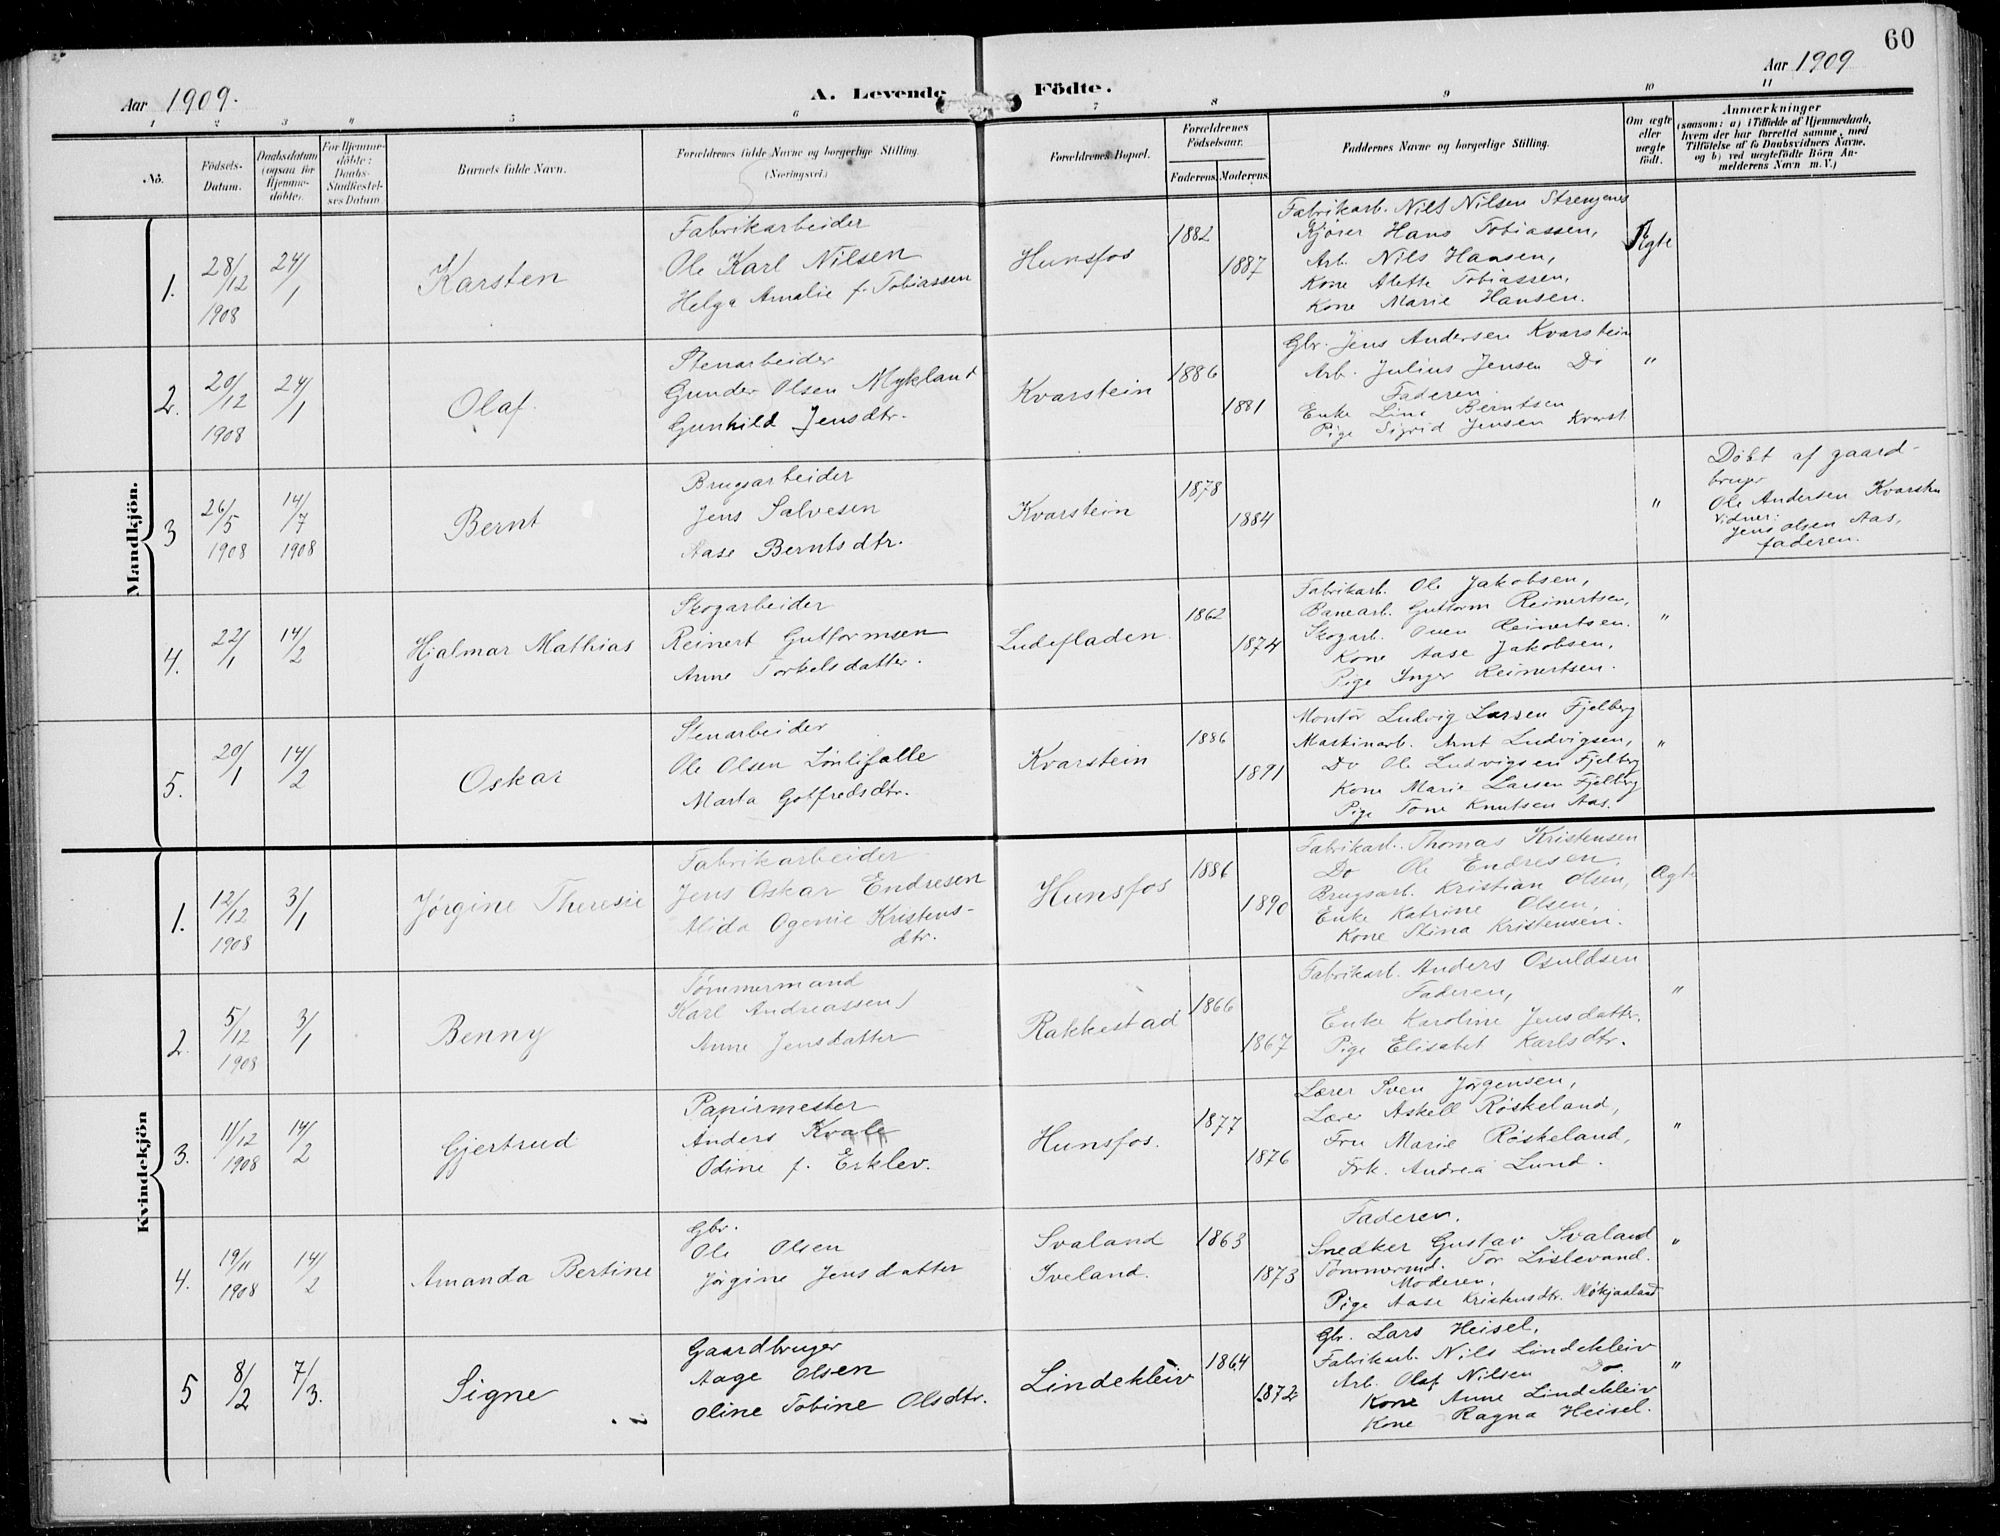 60
Aar 1909.
A. Levende Födte.
Aar 1909
1 2 3 4 5 6 7 8 9 10 11
No.
Födsels-Datum.
Daabsdatum (ogsaa for Hjemme-döbte).
For Hjemme-döbte: Daabs-Stadfæstel-ses Datum
Barnets fulde Navn.
Forældrenes fulde Navne og borgerlige Stilling.
(Næringsvei.)
Forældrenes Bopæl.
Forældrenes Födselsaar.
Faderens. Moderens.
Faddernes Navne og borgerlige Stilling.
Om ægte eller uægte födt.
Anmærkninger
(saasom: a) i Tilfælde af Hjemmedaab, hvem der har forrettet samme, med Tilföielse af to Daabsvidners Navne, og b) ved uægtefödte Börn An-melderens Navn m. V.)
Mandkjön.
1.
28/12 1908
24/1
Karsten
Fabrikarbeider
Ole Karl Nilsen
Helga Amalie f. Tobiassen
Hunsfos
1882
1887
Fabrikarb. Nils Nilsen Strengenes
Kjører Hans Tobiassen,
Arb. Nils Hansen,
Kone Alette Tobiassen,
Kone Marie Hansen.
Ægte
2.
20/12 1908
24/1
Olaf.
Stenarbeider
Gunder Olsen Mykland
Gunhild Jensdtr.
Kvarstein
1886
1881
Gbr. Jens Andersen Kvarstein
Arb. Julius Jensen Do
Faderen.
Enke Line Berntsen
Pige Sigrid Jensen Kvarst
"
3
26/5 1908
14/7 1908
Bernt
Brugsarbeider
Jens Salvesen
Aase Berntsdtr.
Kvarstein
1878
1884
"
Døbt af gaard-
bruger
Ole Andersen Kvarstein
Vidner:
Jens Olsen Aas,
faderen.
4.
22/1
14/2
Hjalmar Mathias
Skogarbeider
Reinert Guttormsen
Anne Torkelsdatter.
Ludefladen
1862
1874
Fabrikarb. Ole Jakobsen,
Banearb. Guttorm Reinertsen,
Skogarb. Owen Reinertsen.
Kone Aase Jakobsen,
Pige Inger Reinertsen.
"
5.
20/1
14/2
Oskar
Stenarbeider
Ole Olsen Lønlifalle
Marta Gotfredsdtr.
Kvarstein
1886
1891
Montør Ludvig Larsen Fjelberg
Maskinarb. Arnt Ludvigsen,
Do Ole Ludvigsen Fjelberg
Kone Marie Larsen Fjelberg
Pige Tone Knutsen Aas.
"
Kvindekjön
1.
12/12 1908
3/1
Jørgine Theresie
Fabrikarbeider
Jens Oskar Endresen
Alida Ogenie Kristens-
dtr.
Hunsfos
1886
1890
Fabrikarb. Thomas Kristensen
Do Ole Endresen,
Brugsarb. Kristian Olsen,
Enke Katrine Olsen,
Kone Stina Kristensen.
Ægte
2.
5/12 1908
3/1
Benny
Tømmermand
Karl Andreassen
Anne Jensdatter
Rakkestad
1866
1867
Fabrikarb. Anders Osuldsen
Faderen,
Enke Karoline Jensdatter.
Pige Elisabet Karlsdtr.
"
3.
11/12 1908
14/2
Gjertrud
Papirmester
Anders Kvale
Odine f. Esklev.
Hunsfos.
1877
1876
Lærer Sven Jørgensen,
Lær Askell Røskeland,
Fru Marie Røskeland,
Frk. Andrea Lund.
"
4.
19/11 1908
14/2
Amanda Bertine
Gbr.
Ole Olsen
Jørgine Jensdatter
Svaland
Iveland.
1863
1873
Faderen.
Snedker Gustav Svaland
Tømmermd. Tor Lislevand.
Moderen.
Pige Aase Kristensdtr. Møkjaaland
"
5
8/2
7/3.
Signe
Gaardbruger
Aage Olsen
Oline Tobine Olsdtr.
Lindekleiv
1864
1872
Gbr. Lars Heisel,
Fabrikarb. Nils Lindekleiv
Arb. Olaf Nilsen Do.
Kone Anne Lindekleiv
Kone Ragna Heisel.
"